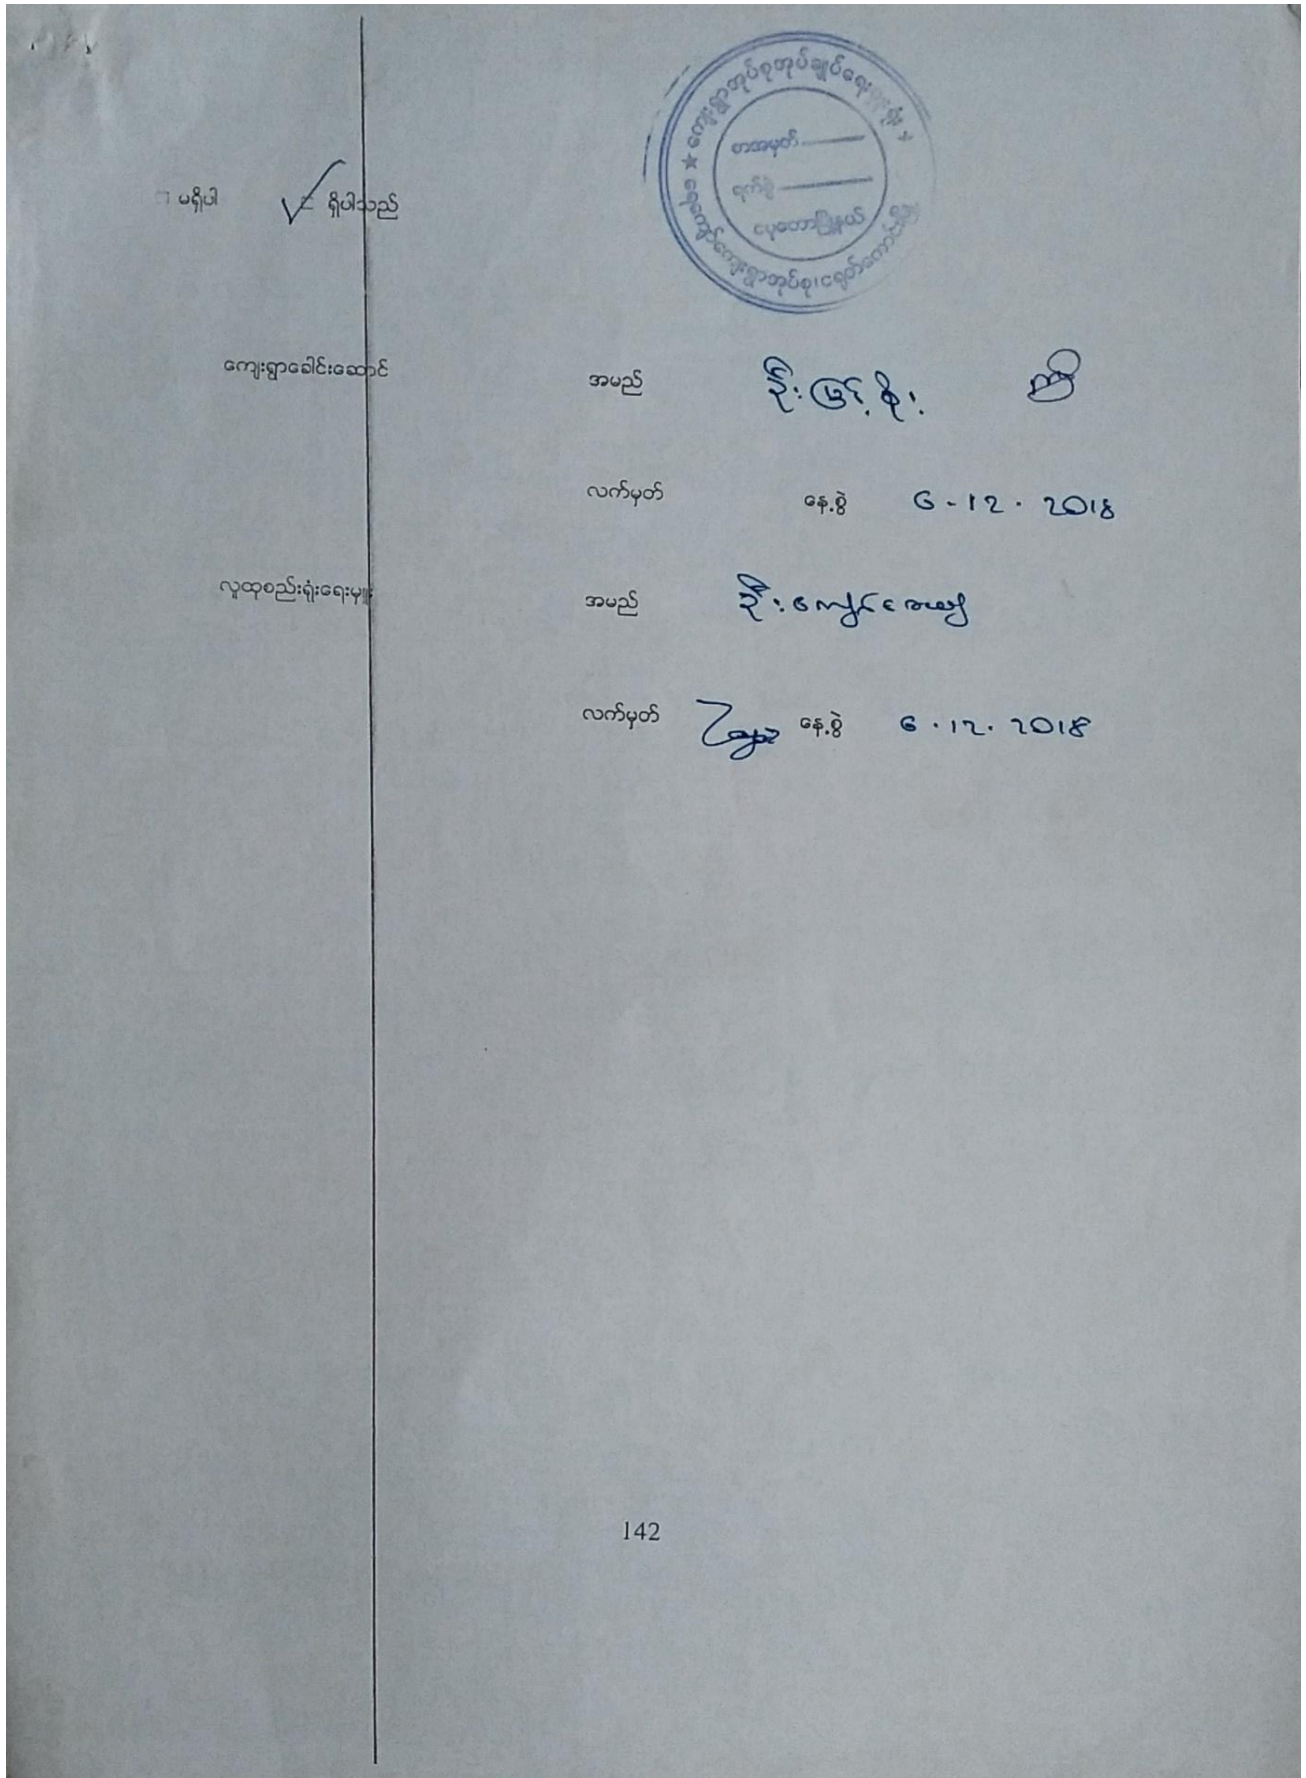 ★ ကျေးရွာအုပ်စုအုပ်ချုပ်ရေးမှူးရုံး ★
စာအမှတ်
ရက်စွဲ
ငပုတောမြို့နယ်
ရေကျော်ကျေးရွာအုပ်စု၊ ငရုတ်ကောင်းမြို့
မရှိပါ ရှိပါသည်
ကျေးရွာခေါင်းဆောင် အမည် ဦးမြင့်စိုး
လက်မှတ် နေ့စွဲ 6-12-2018
လူထုစည်းရုံးရေးမှူး အမည် ဦးကျော်
လက်မှတ် နေ့စွဲ 6.12.2018
142